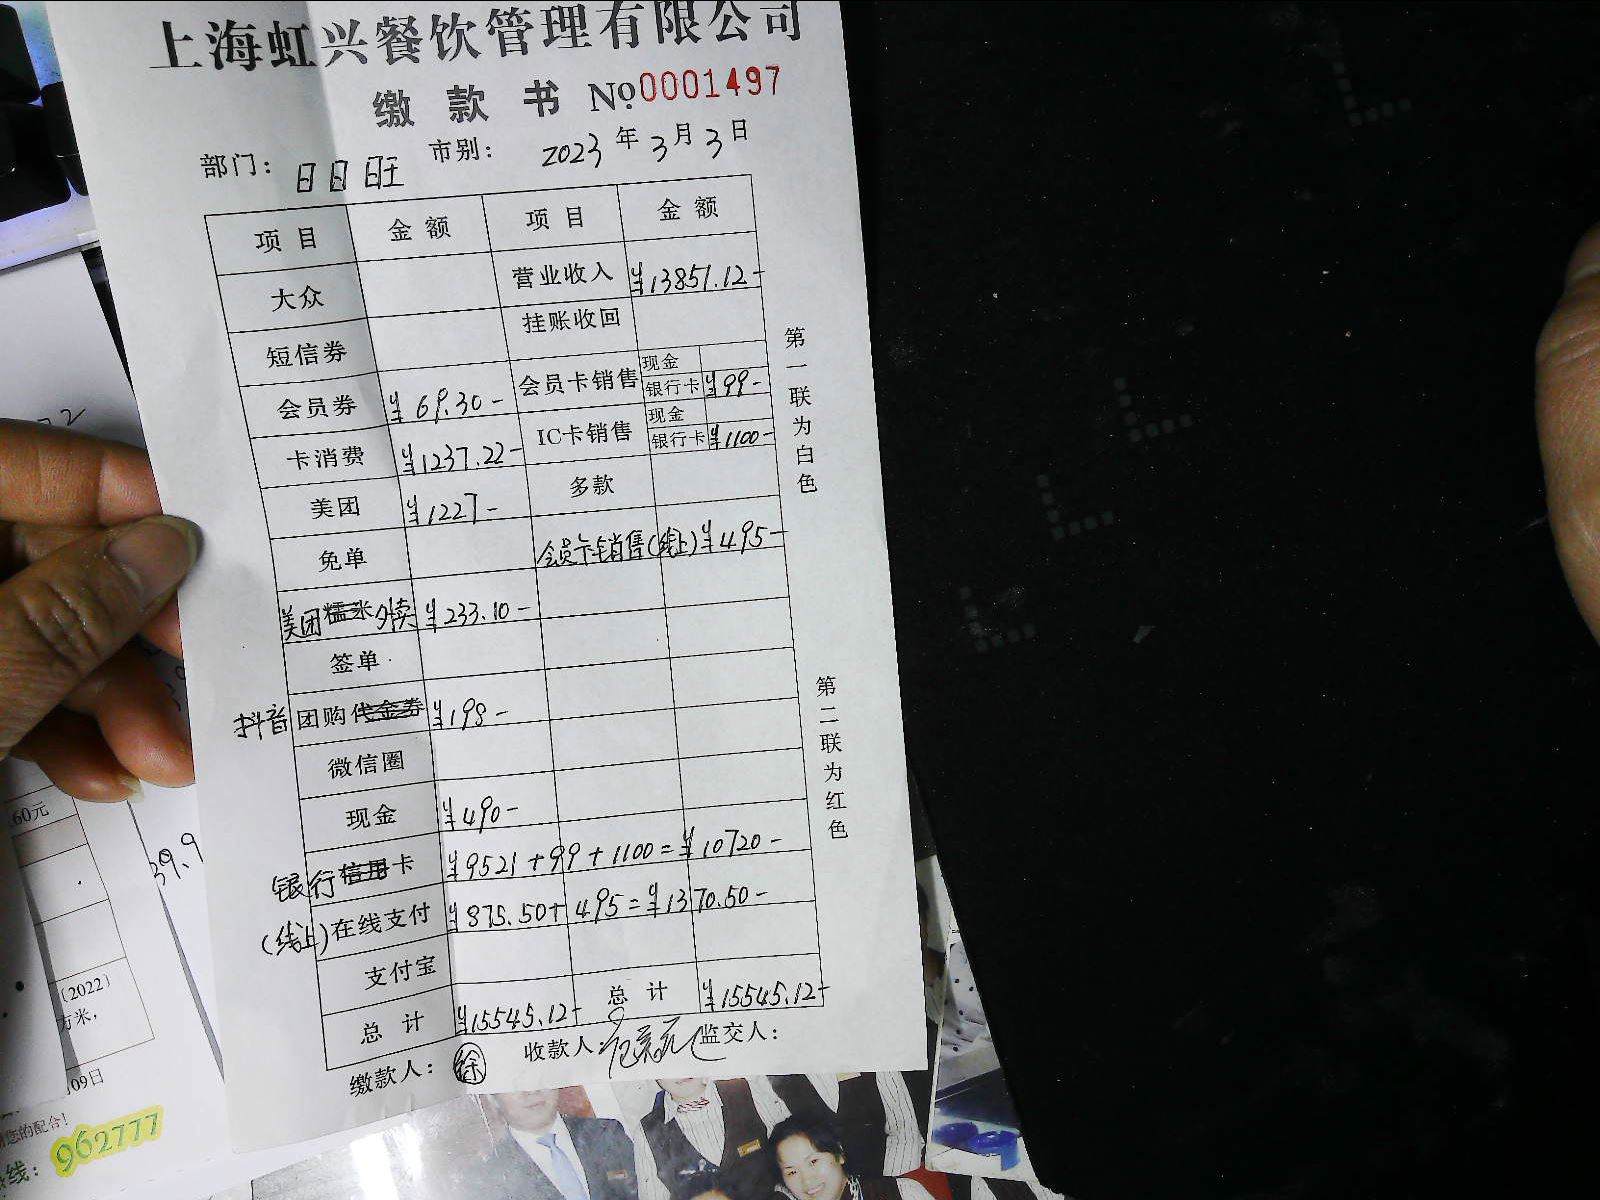 上海虹兴餐饮管理有限公司
缴款书 No.0001497
部门：日日旺 市别： 2023年3月3日
项目 金额 项目 金额
大众 营业收入 ¥13851.12-
短信券 挂账收回
会员券 ¥69.30- 会员卡销售 现金
银行卡 ¥99-
卡消费 ¥1237.22- IC卡销售 现金
银行卡 ¥1100-
美团 ¥1227- 多款
免单 会员卡销售(线上) ¥495-
美团糯米外卖 ¥233.10-
签单
抖音团购代金券 ¥198-
微信圈
现金 ¥490-
银行信用卡 ¥9521+99+1100=¥10720-
(线上)在线支付 ¥875.50+495=¥1370.50-
支付宝
总计 ¥15545.12- 总计 ¥15545.12-
缴款人：徐 收款人： 监交人：
第一联为白色
第二联为红色
.60元
39.9
(2022)
方米，
.09日
您的配合！
线：962777